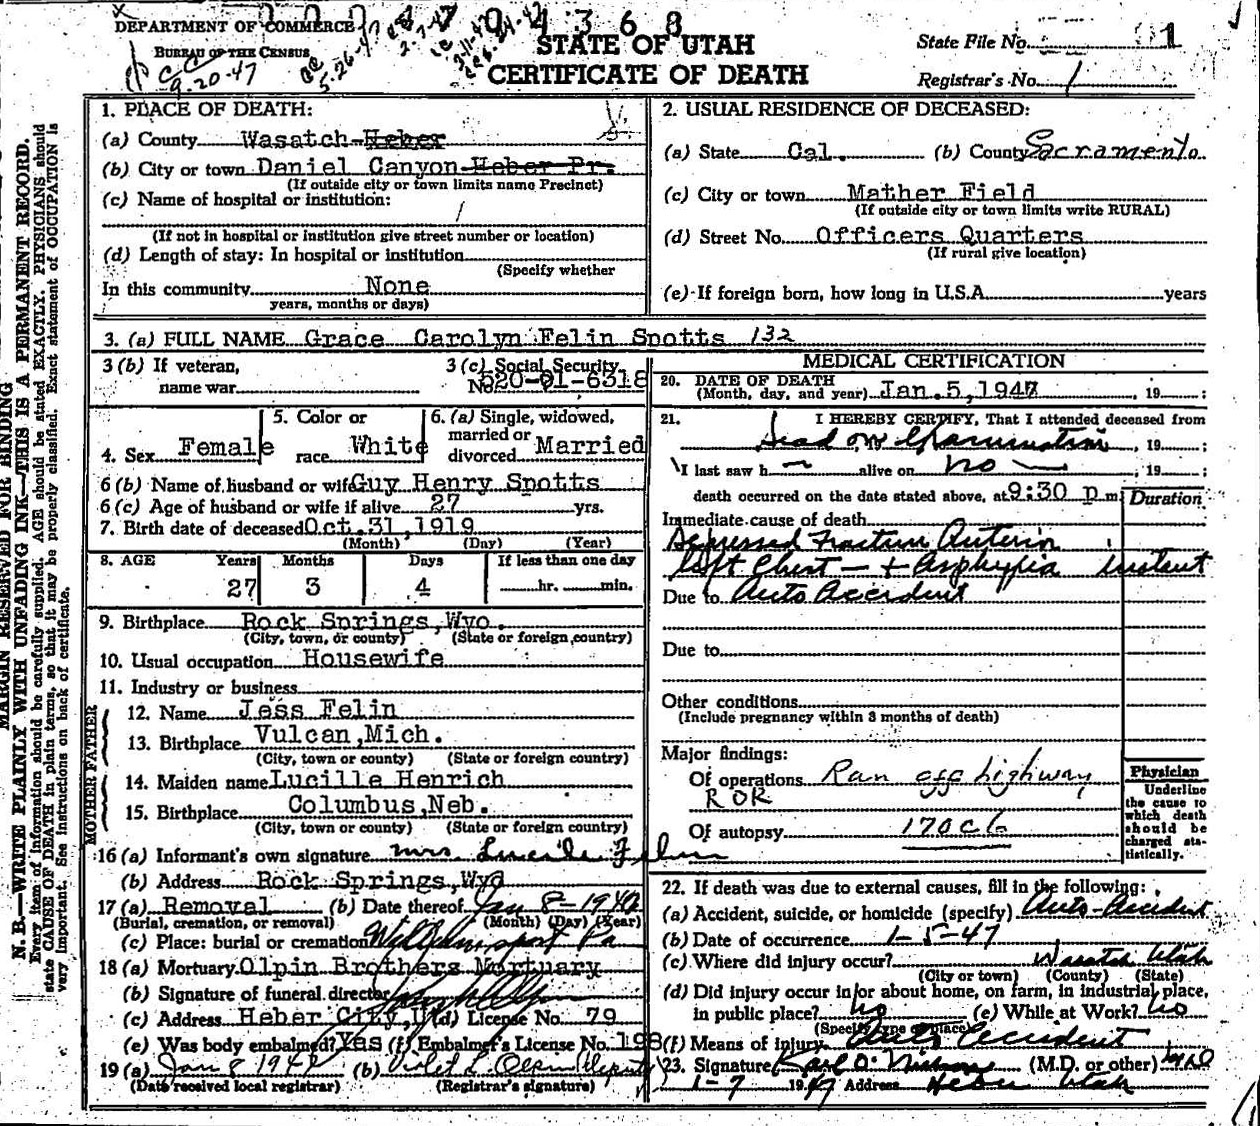 DEPARTMENT OF COMMERCE
BUREAU OF THE CENSUS
9-20-47
5-26-47
2-7-47
04368
STATE OF UTAH
CERTIFICATE OF DEATH
State File No. 1
Registrar's No. 1
MARGIN RESERVED FOR BINDING
N. B.—WRITE PLAINLY WITH UNFADING INK—THIS IS A PERMANENT RECORD.
Every item of information should be carefully supplied. AGE should be stated EXACTLY. PHYSICIANS should
state CAUSE OF DEATH in plain terms, so that it may be properly classified. Exact statement of OCCUPATION is
very important. See instructions on back of certificate.
1. PLACE OF DEATH:
(a) County Wasatch-Heber
(b) City or town Daniel Canyon-Heber Pr.
(If outside city or town limits name Precinct)
(c) Name of hospital or institution:
(If not in hospital or institution give street number or location)
(d) Length of stay: In hospital or institution
(Specify whether
In this community None
years, months or days)
2. USUAL RESIDENCE OF DECEASED:
(a) State Cal. (b) County Sacramento
(c) City or town Mather Field
(If outside city or town limits write RURAL)
(d) Street No. Officers Quarters
(If rural give location)
(e) If foreign born, how long in U.S.A. years
3. (a) FULL NAME Grace Carolyn Felin Spotts 132
3 (b) If veteran,
name war
3 (c) Social Security
No. 520-01-6318
4. Sex Female
5. Color or
race White
6. (a) Single, widowed,
married or
divorced Married
6 (b) Name of husband or wife Guy Henry Spotts
6 (c) Age of husband or wife if alive 27 yrs.
7. Birth date of deceased Oct. 31, 1919
(Month) (Day) (Year)
8. AGE Years Months Days If less than one day
27 3 4 hr. min.
9. Birthplace Rock Springs, Wyo.
(City, town, or county) (State or foreign country)
10. Usual occupation Housewife
11. Industry or business
FATHER
12. Name Jess Felin
13. Birthplace Vulcan, Mich.
(City, town or county) (State or foreign country)
MOTHER
14. Maiden name Lucille Henrich
15. Birthplace Columbus, Neb.
(City, town or county) (State or foreign country)
16 (a) Informant's own signature Mrs. Lucile Felin
(b) Address Rock Springs, Wyo
17 (a) Removal (b) Date thereof Jan 8-194
(Burial, cremation, or removal) (Month) (Day) (Year)
(c) Place: burial or cremation Williamsport Pa
18 (a) Mortuary Olpin Brothers Mortuary
(b) Signature of funeral director
(c) Address Heber City, U (d) License No. 79
(e) Was body embalmed? Yes (f) Embalmer's License No. 198
19 (a) Jan 8 1947 (b) Violet L Olpin deputy
(Date received local registrar) (Registrar's signature)
MEDICAL CERTIFICATION
20. DATE OF DEATH
(Month, day, and year) Jan. 5, 1947, 19 ;
21. I HEREBY CERTIFY, That I attended deceased from
Dead on Examination, 19 ;
I last saw h— alive on no —, 19 ;
death occurred on the date stated above, at 9:30 p m
Duration
Immediate cause of death
Depressed Fracture Anterior
left Chest — + Asphyxia instant
Due to Auto Accident
Due to
Other conditions
(Include pregnancy within 3 months of death)
Major findings:
Of operations Ran off highway
R OR
Of autopsy 170 c6
Physician
Underline
the cause to
which death
should be
charged sta-
tistically.
22. If death was due to external causes, fill in the following:
(a) Accident, suicide, or homicide (specify) Auto-Accident
(b) Date of occurrence 1-5-47
(c) Where did injury occur? Wasatch Utah
(City or town) (County) (State)
(d) Did injury occur in or about home, on farm, in industrial place,
in public place? No (e) While at Work? No
(Specify type of place)
(f) Means of injury Auto Accident
23. Signature Karl O. (M.D. or other) MD
1-7 1947 Address Heber Utah